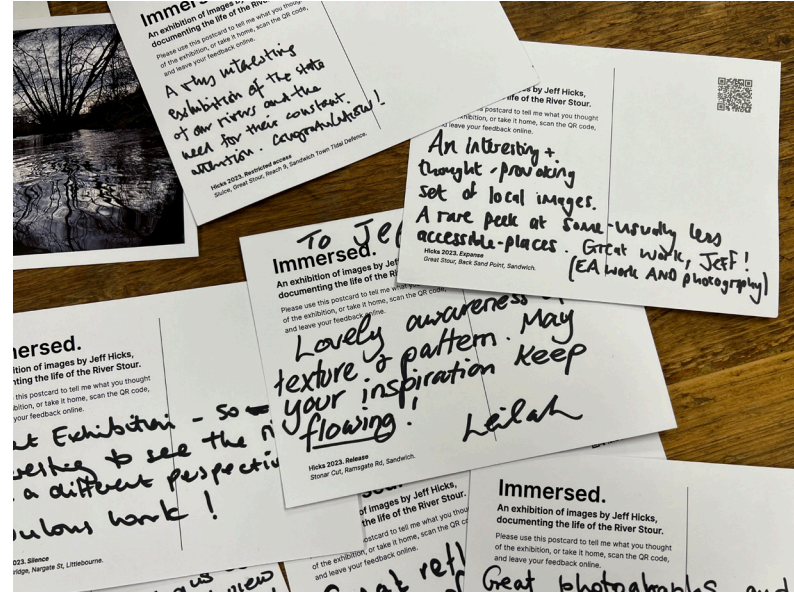 Immersed.
An exhibition of images by
documenting the life of the River Stour.
Please use this postcard to tell me what you thought
of the exhibition, or take it home, scan the QR code,
and leave your feedback online.
A very interesting
exhibition of the state
of our rivers and the
need for their constant.
attention. Congratulations!
Hicks 2023. Restricted access
Sluice, Great Stour, Reach 9, Sandwich Town Tidal Defence.
by Jeff Hicks,
life of the River Stour.
postcard to tell me what you thought
or take it home, scan the QR code,
and leave your feedback online.
An interesting +
thought-provoking
set of local images.
A rare peek at some-usually less
accessible-places. Great work, Jeff!
(EA work AND photography)
Hicks 2023. Expanse
Great Stour, Back Sand Point, Sandwich.
To
Immersed.
An exhibition of images by Jeff
documenting the life of the River
Please use this postcard to tell me what you
of the exhibition, or take it home, scan the QR code,
and leave your feedback online.
Lovely awareness
texture & pattern. May
your inspiration keep
flowing!
Leilah
Hicks 2023. Release
Stonar Cut, Ramsgate Rd, Sandwich.
of images by Jeff Hicks,
the life of the River Stour.
this postcard to tell me what you thought
or take it home, scan the QR code,
your feedback online.
Exhibition - so
to see the
a different
work!
2023. Silence
Nargate St, Littlebourne.
of images by Jeff Hicks,
the life of the River Stour.
postcard to tell me what you
of the exhibition, or take it home, scan the QR
and leave your feedback online.
Immersed.
An exhibition of images by Jeff Hicks,
documenting the life of the River Stour.
Please use this postcard to tell me what you thought
of the exhibition, or take it home, scan the QR code,
and leave your feedback online.
Great photographs and